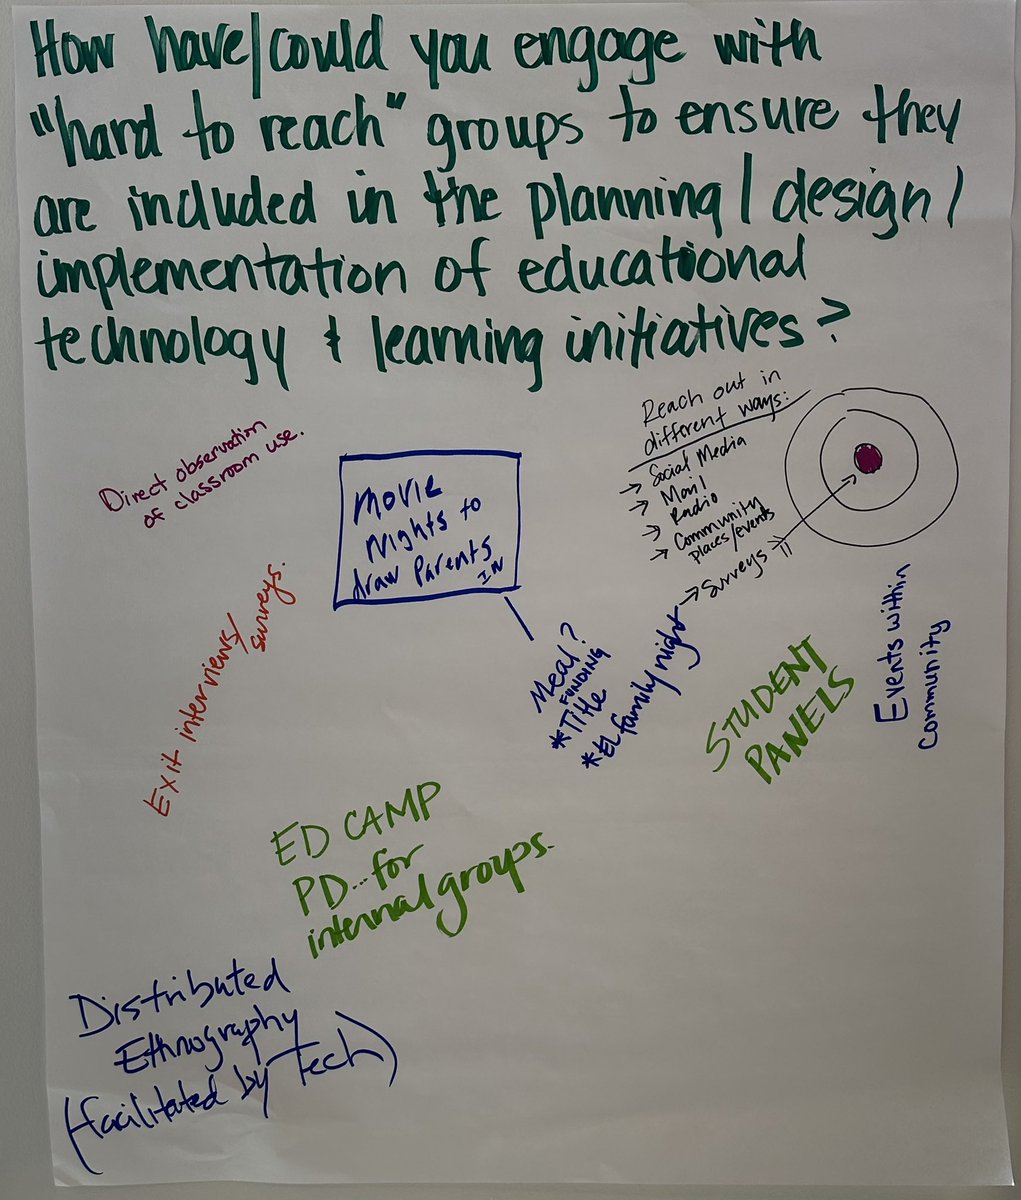 How have/could you engage with
"hard to reach" groups to ensure they
are included in the planning/design/
implementation of educational
technology & learning initiatives?
Direct observation
of classroom use.
Movie
Nights to
draw Parents
IN
Reach out in
different ways:
→ Social Media
→ Mail
→ Radio
→ Community
places/events
→ Surveys
Exit interviews/
surveys.
Meal?
FUNDING
*Title
*EL family night
STUDENT
PANELS
Events within
community
ED CAMP
PD...for
internal groups.
Distributed
Ethnography
(facilitated by Tech)